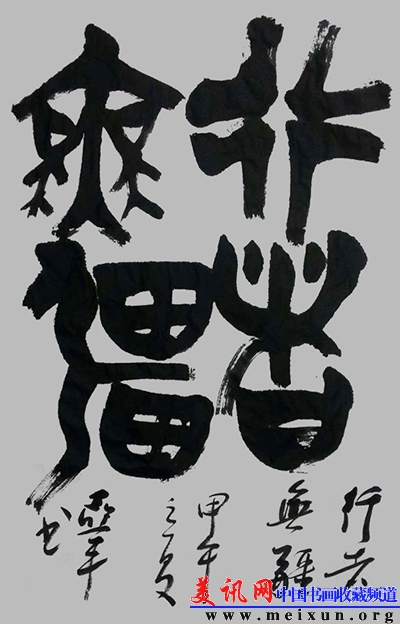 行者
無疆
行者
無疆
甲午
之夏
平
书
美讯网 中国书画收藏频道
www.meixun.org